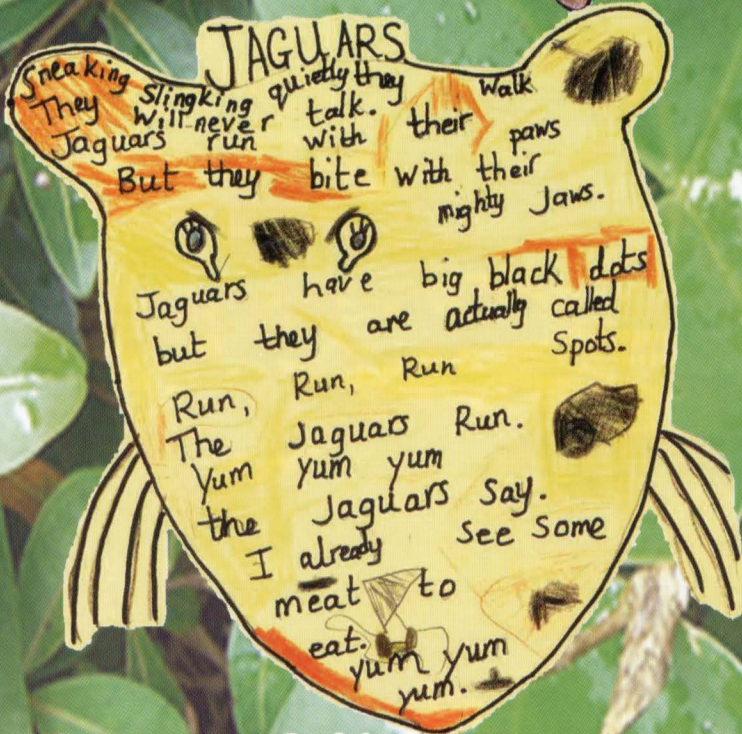 JAGUARS
Sneaking Slingking quietly they Walk
They Will never talk.
Jaguars run with their paws
But they bite with their
mighty Jaws.
Jaguars have big black dots
but they are actually called
Spots.
Run, Run, Run
The Jaguars Run.
Yum yum yum
the Jaguars say.
I already see some
meat to
eat.
yum yum
yum.